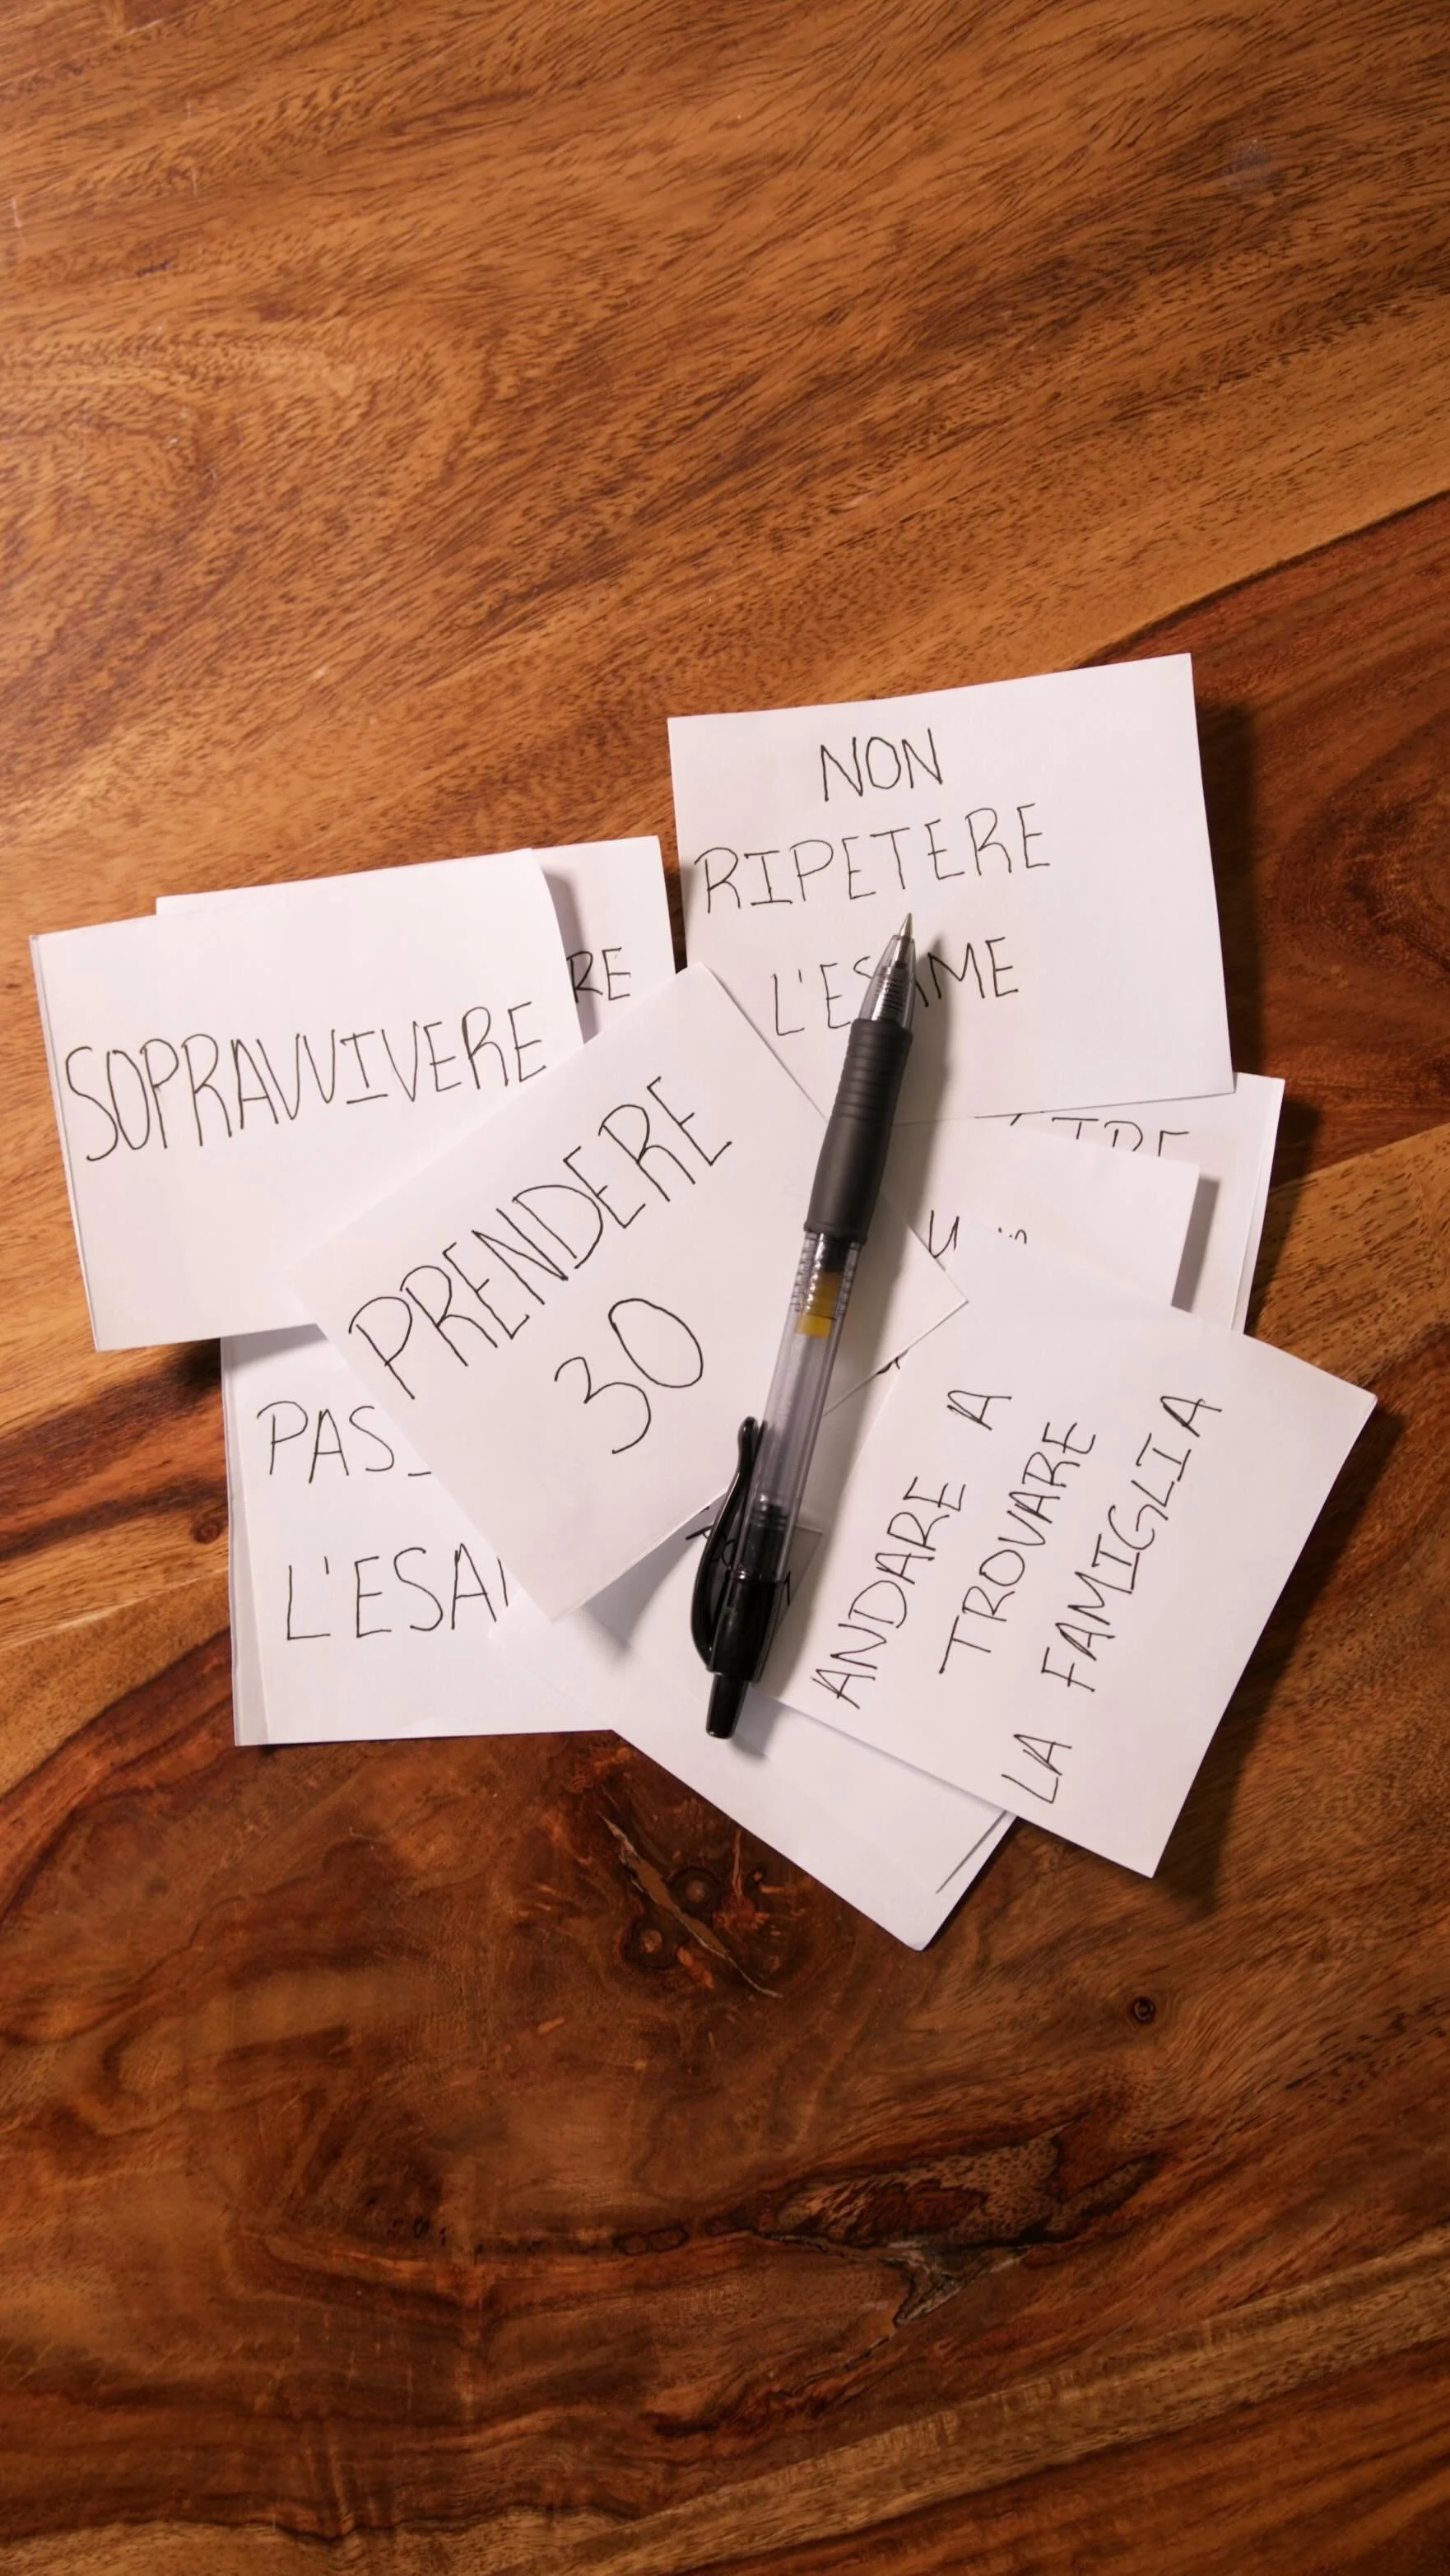 NON
RIPETERE
L'ESAME
SOPRAVVIVERE
RE
PRENDERE
30
PAS
L'ESA
ANDARE A
TROVARE
LA FAMIGLIA